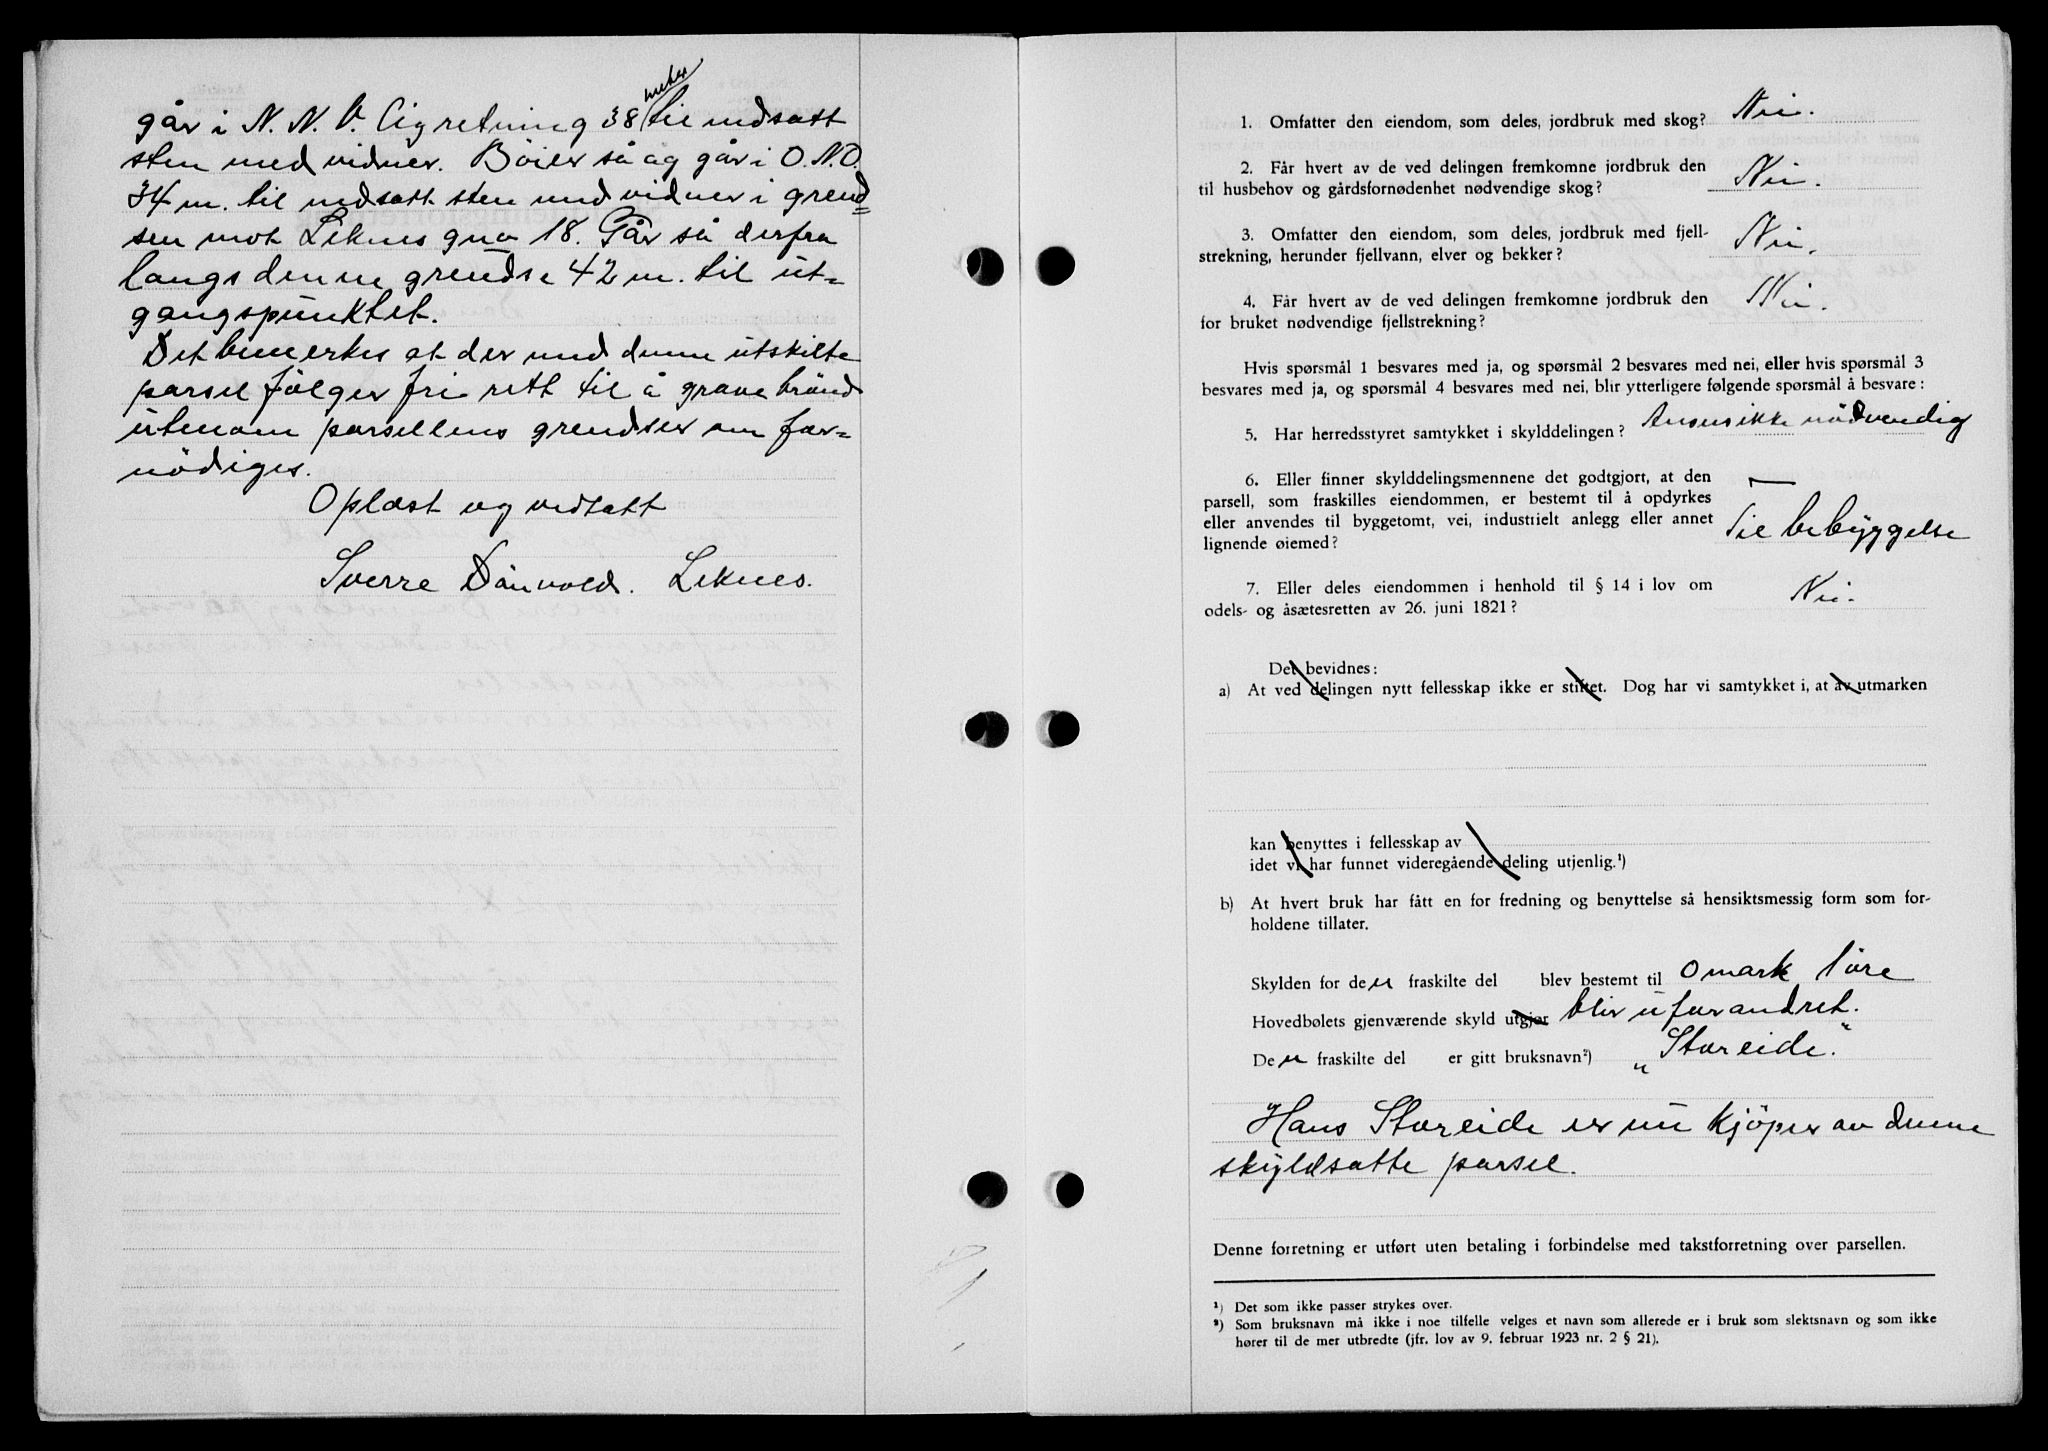 går i N. N. V. lig retning 38 meter til nedsatt
sten med vidner. Böier så og går i O. N. O.
34 m. til nedsatt sten med vidner i grend=
sen mot Leknes gno 18. Går så derfra
langs denne grendse 42 m. til ut=
gangspunktet.
Det bemerkes at der med denne utskilte
parsel følger fri rett til å grave brönd
utenom parsellens grendser om for=
nödiges.
Oplæst og vedtatt
Sverre Dånvold. Leknes.
1. Omfatter den eiendom, som deles, jordbruk med skog? Nei.
2. Får hvert av de ved delingen fremkomne jordbruk den
til husbehov og gårdsfornødenhet nødvendige skog? Nei.
3. Omfatter den eiendom, som deles, jordbruk med fjell-
strekning, herunder fjellvann, elver og bekker? Nei.
4. Får hvert av de ved delingen fremkomne jordbruk den
for bruket nødvendige fjellstrekning? Nei.
Hvis spørsmål 1 besvares med ja, og spørsmål 2 besvares med nei, eller hvis spørsmål 3
besvares med ja, og spørsmål 4 besvares med nei, blir ytterligere følgende spørsmål å besvare:
5. Har herredsstyret samtykket i skylddelingen? Ansees ikke nödvendig
6. Eller finner skylddelingsmennene det godtgjort, at den
parsell, som fraskilles eiendommen, er bestemt til å opdyrkes
eller anvendes til byggetomt, vei, industrielt anlegg eller annet
lignende øiemed? Til bebyggelse
7. Eller deles eiendommen i henhold til § 14 i lov om
odels- og åsætesretten av 26. juni 1821? Nei.
Det bevidnes:
a) At ved delingen nytt fellesskap ikke er stiftet. Dog har vi samtykket i, at av utmarken
kan benyttes i fellesskap av
idet vi har funnet videregående deling utjenlig.¹)
b) At hvert bruk har fått en for fredning og benyttelse så hensiktsmessig form som for-
holdene tillater.
Skylden for den fraskilte del blev bestemt til 0 mark 1 øre
Hovedbølets gjenværende skyld utgjør blir uforandret.
Den fraskilte del er gitt bruksnavn²) „Storeide."
Hans Storeide er nu kjöper av denne
skyldsatte parsel.
Denne forretning er utført uten betaling i forbindelse med takstforretning over parsellen.
¹) Det som ikke passer strykes over.
²) Som bruksnavn må ikke i noe tilfelle velges et navn som allerede er i bruk som slektsnavn og som ikke
hører til de mer utbredte (jfr. lov av 9. februar 1923 nr. 2 § 21).